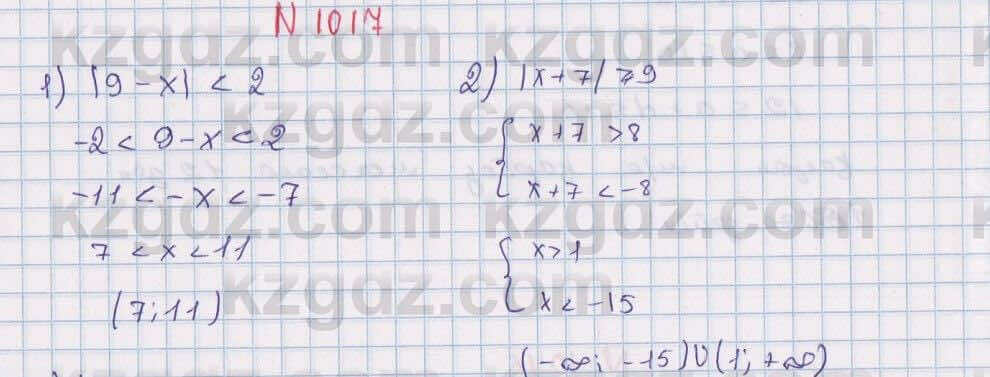 N 1017
1) |9-x| < 2
-2 < 9-x < 2
-11 < -x < -7
7 < x < 11
(7; 11)
2) |x+7| > 9
{ x+7 > 8
x+7 < -8
{ x > 1
x < -15
(-∞; -15)∪(1; +∞)
kzgdz.com
kzgdz.com
kzgdz.com
kzgdz.com
kzgdz.com
kzgdz.com